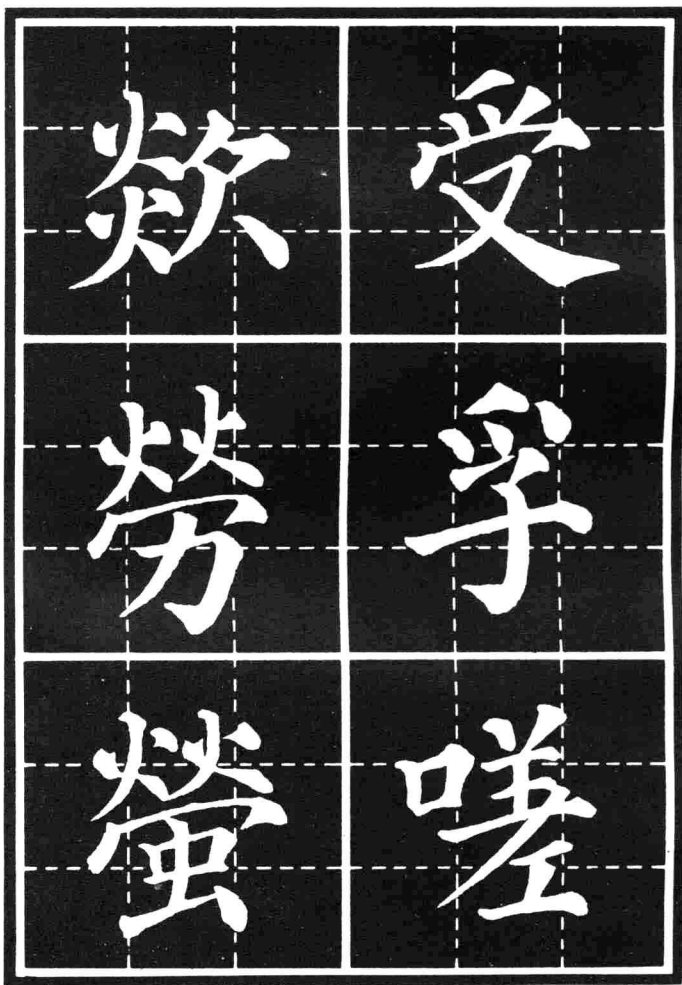 受孚嗟
欻勞螢